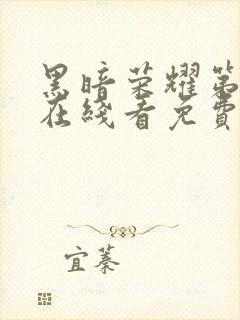 黑暗荣耀第
在线看免費
宜蓁